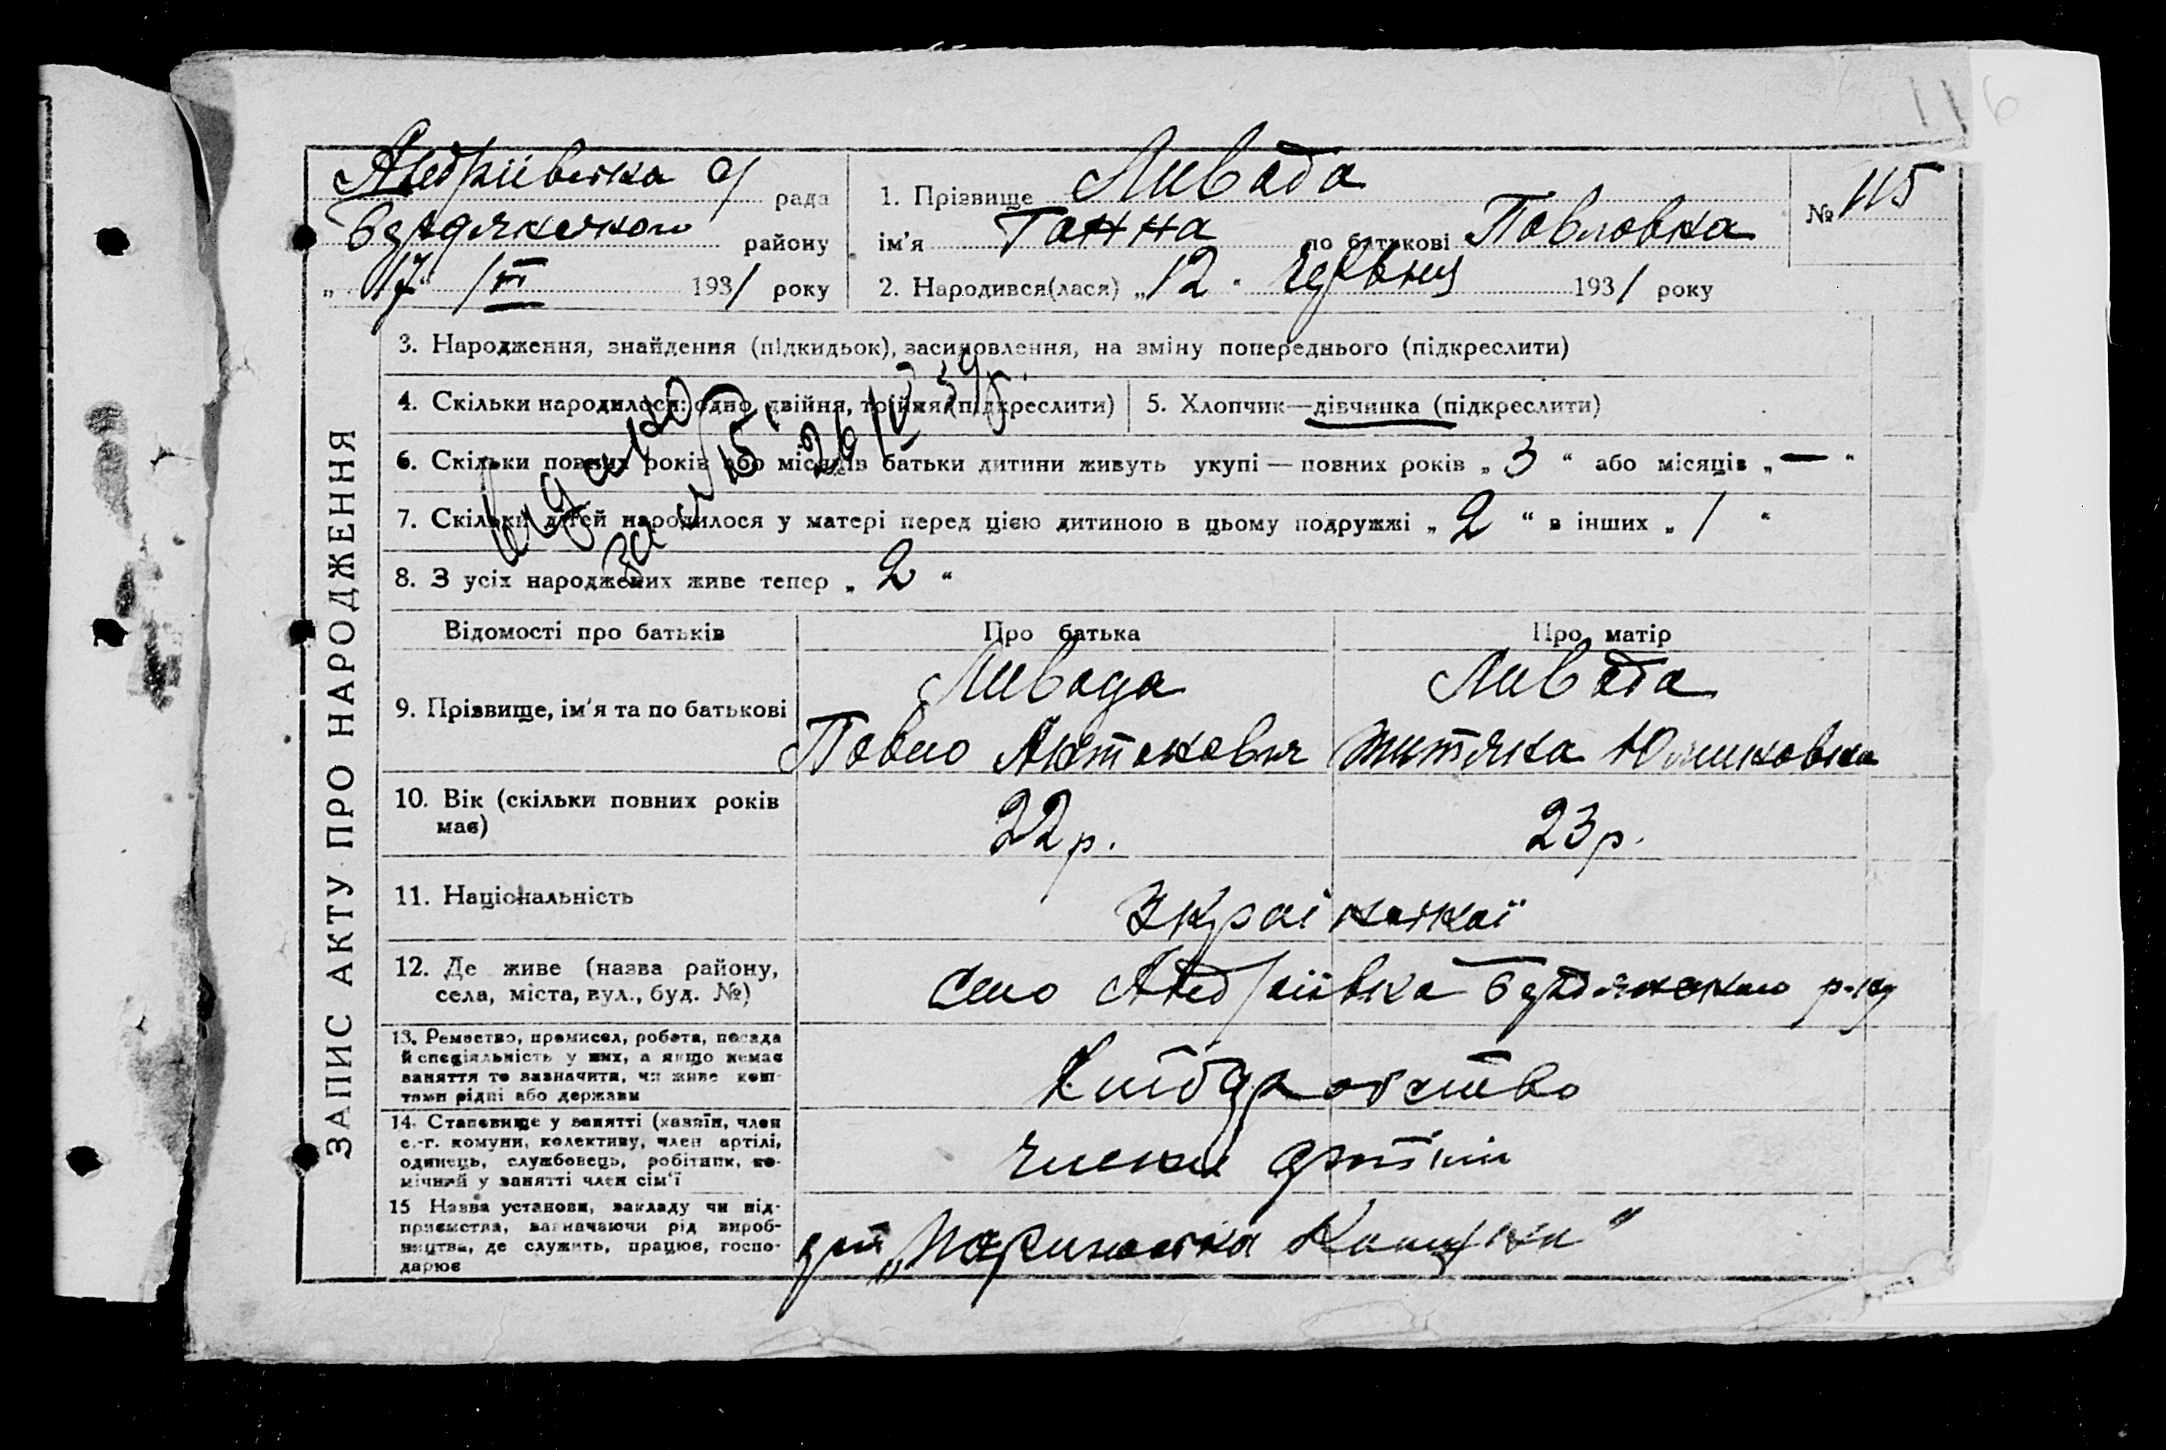 116
Андріівська с/рада
Бердянського району
„17“ /VI 1931 року
1. ПрізвищеЛивада
ім'я Ганна по батькові Павловна
2. Народився(лася) „12“ червня 1931 року
№ 115
ЗАПИС АКТУ ПРО НАРОДЖЕННЯ
3. Народження, знайдення (підкидьок), засиновлення, на зміну попереднього (підкреслити)
4. Скільки народилося: одно, двійня, трійня (підкреслити)
5. Хлопчик—дівчинка (підкреслити)
6. Скільки повних років або місяців батьки дитини живуть укупі — повних років „3“ або місяців „—“
7. Скільки дітей народилося у матері перед цією дитиною в цьому подружжі „2“ в інших „1“
8. З усіх народжених живе тепер „2“
Відомості про батьків
Про батька
Про матір
9. Прізвище, ім'я та по батькові
Ливада
Павло Антонович
Ливада
10. Вік (скільки повних років має)
22 р.
23 р.
11. Національність
Українські
12. Де живе (назва району,
села, міста, вул., буд. №)
Село Андріівка Бердянського р-ну
13. Ремество, промисел, робота, посада
й спеціяльність у них, а якщо немає
заняття то зазначити, чи живе кош-
тами рідні або держави
Хліборобство
14. Становище у занятті (хазяїн, член
с.-г. комуни, колективу, член артілі,
одинець, службовець, робітник, по-
мічний у занятті член сім'ї
члени артіли
15 Назва установи, закладу чи під-
приємства, зазначаючи рід вироб-
ництва, де служить, працює, госпо-
дарює
арт. „Паризська Комуна“